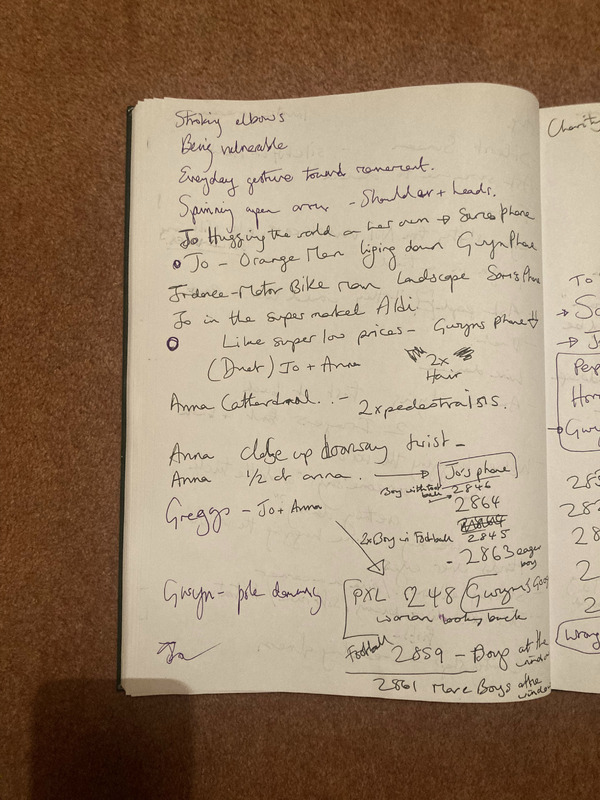 Stroking elbows
Being vulnerable
Everyday gesture toward
Spinning open arms - Shoulder + heads.
Jo Hugging the world on her own → Sams phone
Jo - Orange Man Gwyn Phone
Jo dance - Motor Bike man Landscape Sam's Phone
Jo in the super market Aldi.
Like super low prices - Gwyns phone
(Duet) Jo + Anna
2x Hair
Anna Cathedral. - 2x pedestrians.
Anna close up doorway twist -
Anna 1/2 of anna. → Jo's phone
Boy with back 2846
2864
2845
2x Boy in Football
Greggs - Jo + Anna
- 2863 eager boy
Gwyn - pole dancing
PXL 248 Gwyn's
woman "looking back
Football 2859 - Boys at the window
2861 More Boys at the window
Jo
Charity
To
→ So
→ J
Per
Hor
→ Gwy
283
282
2
2
Wrong